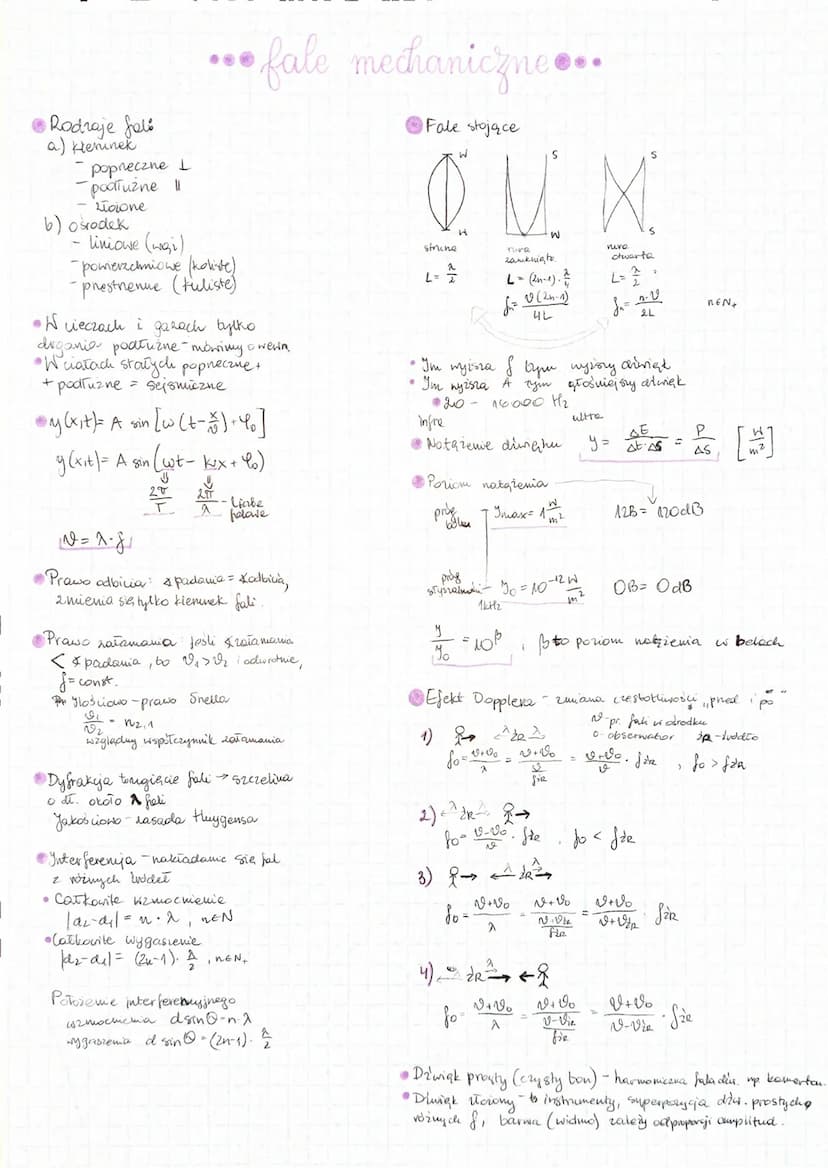 fale mechaniczne
Rodzaje fal:
a) kierunek
- poprzeczne ⊥
- podłużne ||
- złożone
b) ośrodek
- liniowe (wąż)
- powierzchniowe (koliste)
- przestrzenne (kuliste)
W cieczach i gazach tylko
drgania podłużne - mówimy o wewn.
W ciałach stałych poprzeczne +
+ podłużne = sejsmiczne
y(x,t) = A sin [ω(t - x/v) + φ₀]
y(x,t) = A sin (ωt - kx + φ₀)
⇓ ⇓
2π/T 2π/λ - liczba
falowa
v = λ·f
Prawo odbicia: ∢ padania = ∢ odbicia,
zmienia się tylko kierunek fali.
Prawo załamania: jeśli ∢ załamania
< ∢ padania, bo v₁ > v₂ i odwrotnie,
f = const.
Ilościowo - prawo Snella
v₁/v₂ = n₂,₁
względny współczynnik załamania
Dyfrakcja to ugięcie fali → szczelina
o dł. około λ fali
Jakościowo - zasada Huygensa
Interferencja - nakładanie się fal
z różnych źródeł
Całkowite wzmocnienie
|d₂-d₁| = n · λ, n∈N
Całkowite wygaszenie
|d₂-d₁| = (2n-1) · λ/2, n∈N₊
Położenie interferencyjnego
wzmocnienia d sinθ = n·λ
wygaszenia d sinθ = (2n-1) · λ/2
Fale stojące
W S S
W W S
struna rura rura
zamknięta otwarta
L = λ/2 L = (2n-1) · λ/4 L = λ/2
fₙ = v(2n-1)/4L fₙ = n·v/2L n∈N₊
Im wyższa f tym wyższy dźwięk
Im wyższa A tym głośniejszy dźwięk
20 - 16000 Hz
infra ultra
Natężenie dźwięku y = ΔE/Δt·ΔS = P/ΔS [W/m²]
Poziom natężenia
próg
bólu Jmax = 1 W/m² 12B = 120dB
próg
słyszalności - J₀ = 10⁻¹² W/m² 0B = 0dB
1kHz
y/y₀ = 10^β, β to poziom natężenia w belach
Efekt Dopplera - zmiana częstotliwości „przed i po"
v - pr. fali w ośrodku
o - obserwator źr - źródło
1) λ źR λ
f₀ = v+v₀/λ = v+v₀/(v/fźr) = v+v₀/v · fźr, f₀ > fźr
2) λ źR λ
f₀ = v-v₀/v · fźr, f₀ < fźr
3) λ źR λ
f₀ = v+v₀/λ = v+v₀/(v+vźr/fźr) = v+v₀/v+vźr · fźr
4) λ źR λ
f₀ = v+v₀/λ = v+v₀/(v-vźr/fźr) = v+v₀/v-vźr · fźr
Dźwięk prosty (czysty ton) - harmoniczna fala dźw. np. kamerton.
Dźwięk złożony - instrumenty, superpozycja dźw. prostych o
różnych f, barwa (widmo) zależy od proporcji amplitud.